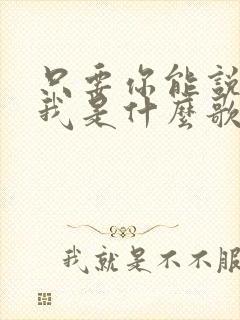 只要你能說
我是什麼歌
我就是不不服